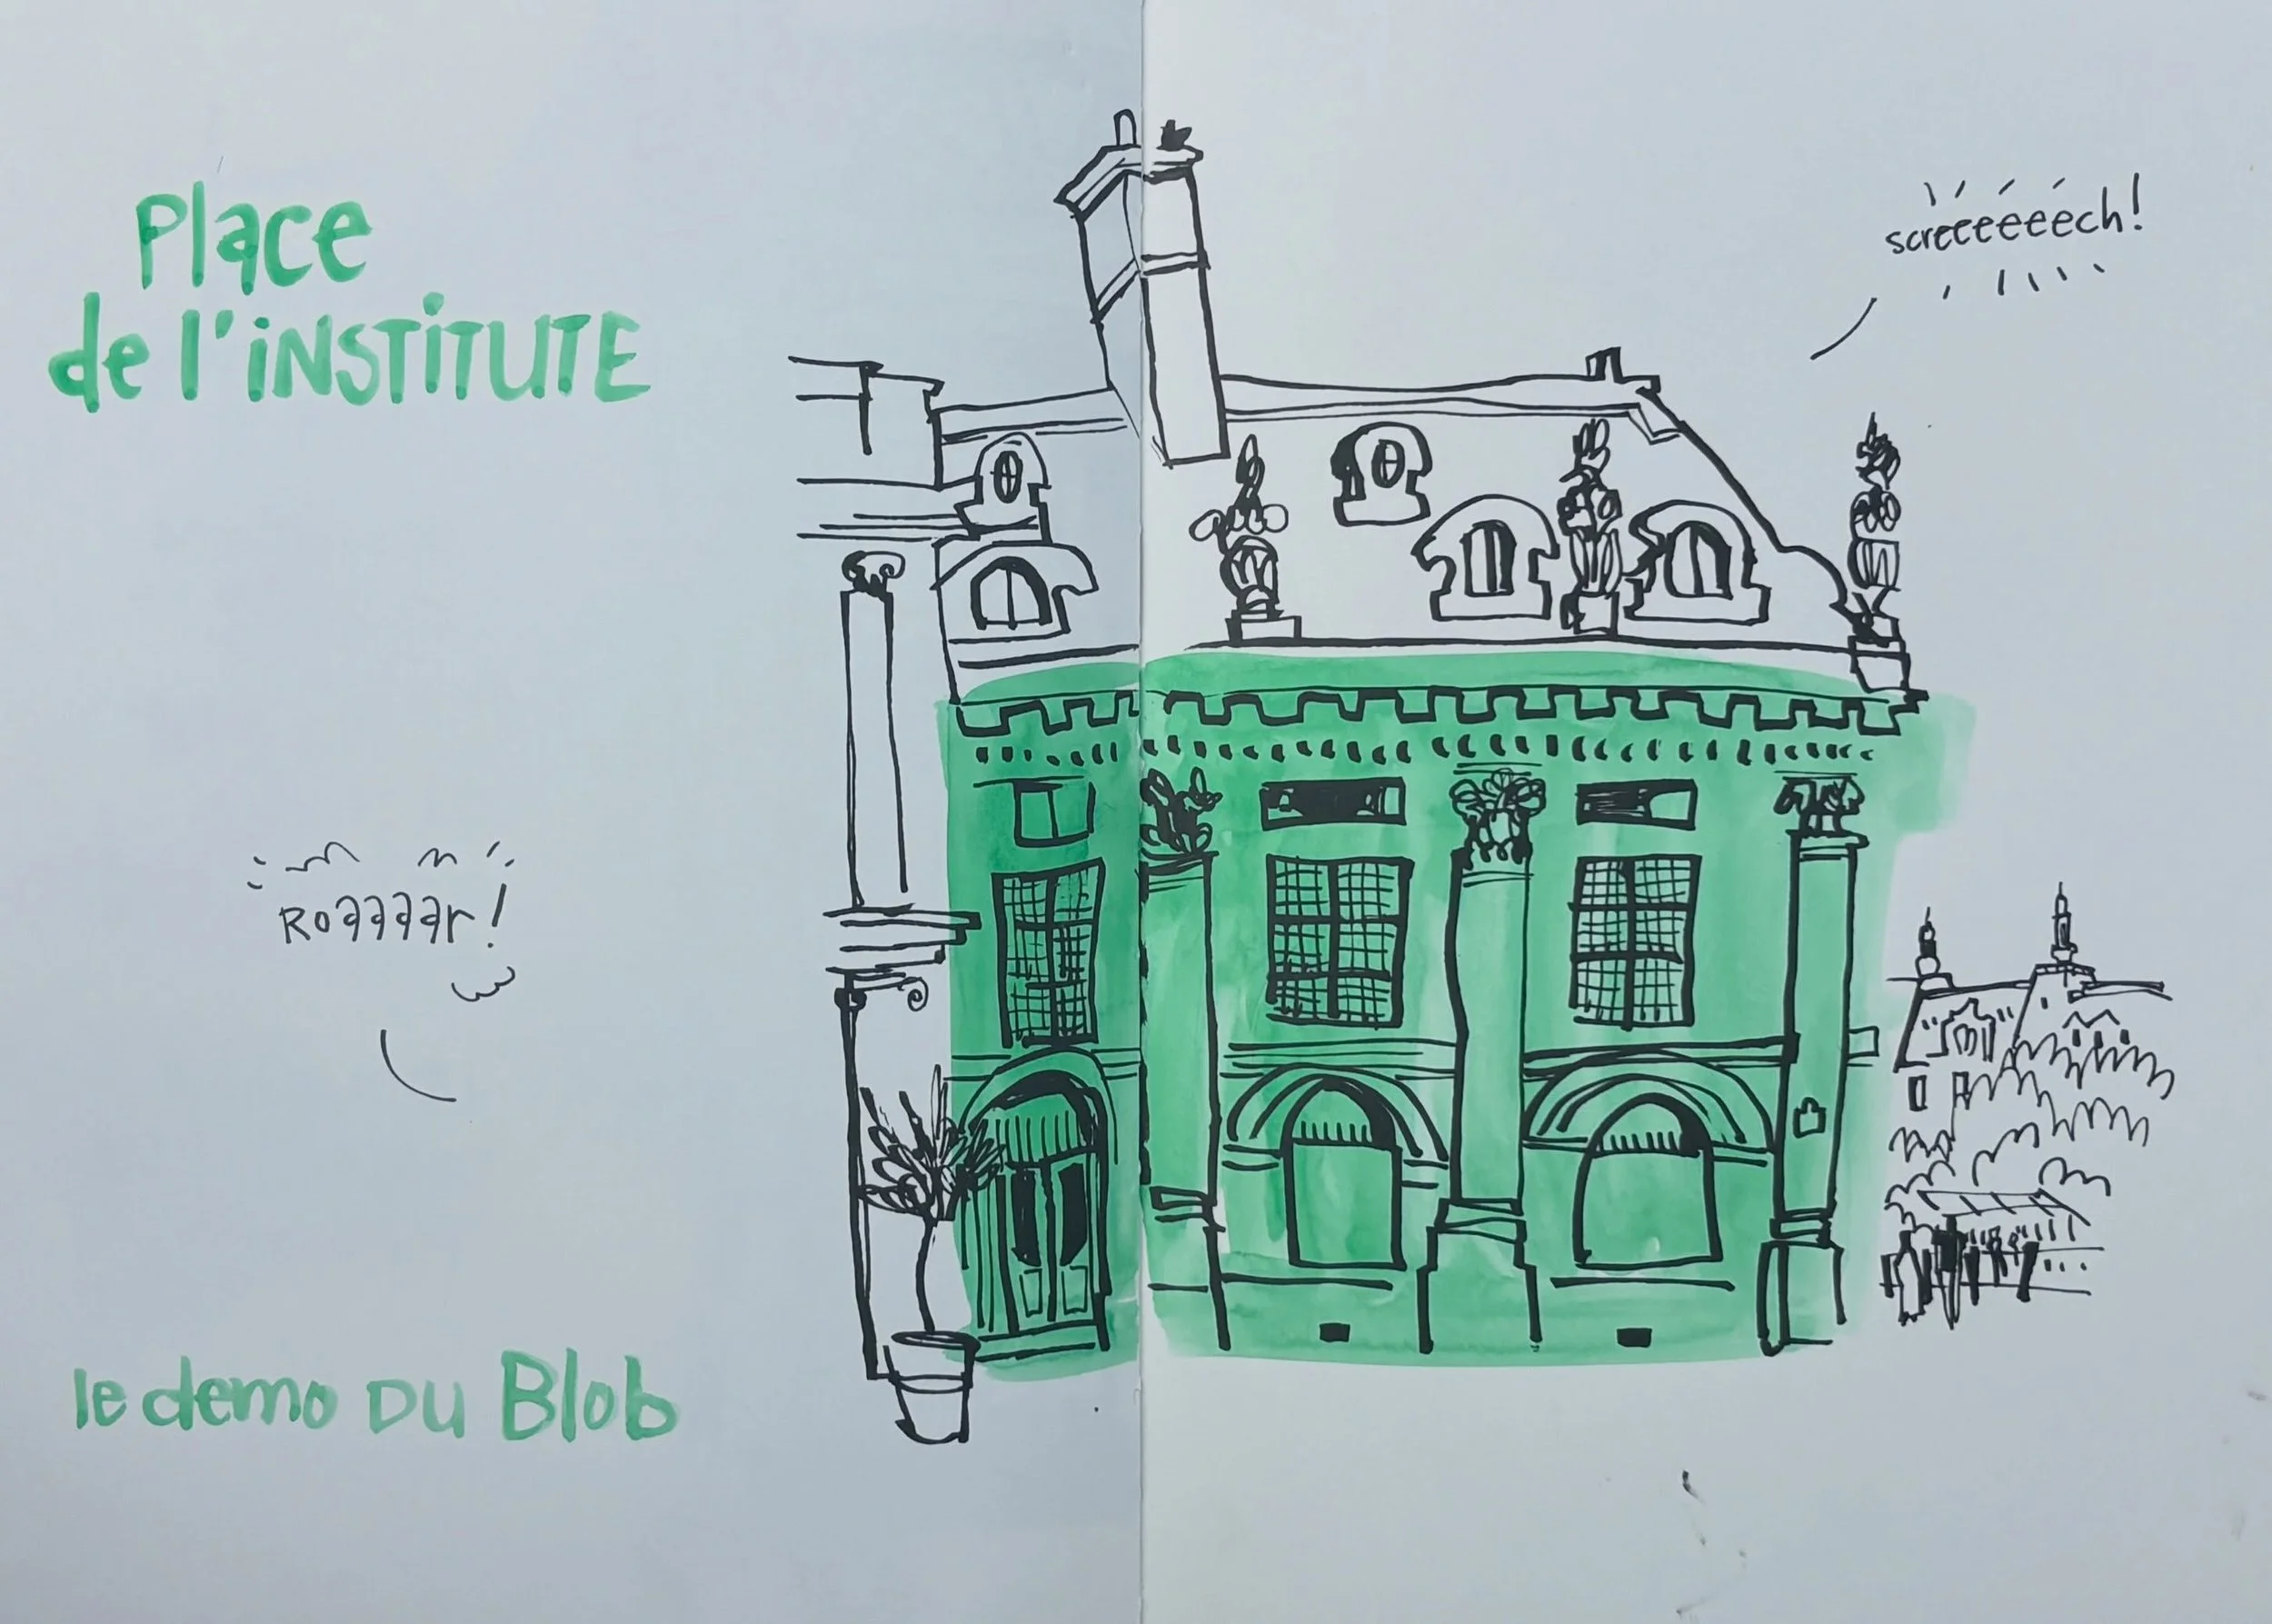 Place
de l'iNSTiTUTE
screeeeeech!
Roaaaar!
le demo DU Blob